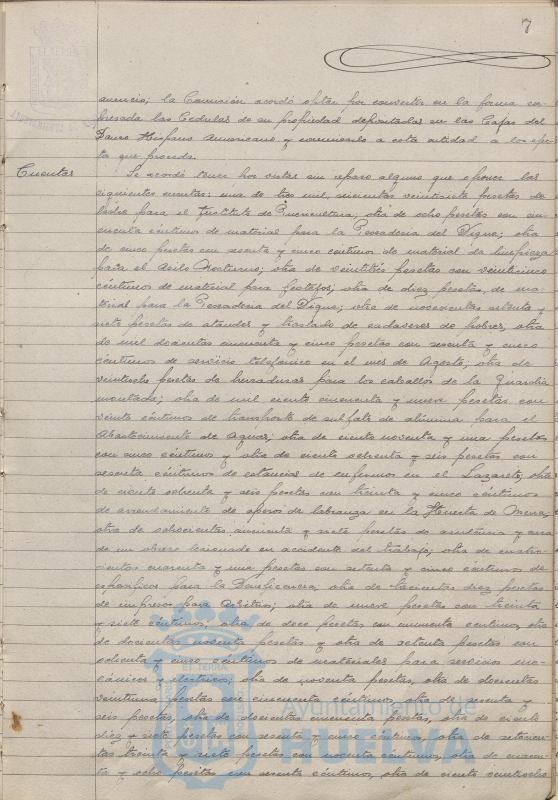 7
anuncio; la Comisión acordó optar por convertir en la forma ex-
presada las Cédulas de su propiedad depositadas en las Cajas del
Banco Hispano Americano y comunicarlo a esta entidad a los efec-
tos que proceda.
Cuentas
Se acordó haber visto sin reparo alguno que oponer las
siguientes cuentas: una de mil, seiscientas veintisiete pesetas de
para el Instituto de Puericultura; otra de ocho pesetas con cin-
cuenta céntimos de material para la Pescadería del Dique; otra
de cinco pesetas con sesenta y cinco céntimos de material de limpieza
para el Asilo Nocturno; otra de veintitrés pesetas con veinticinco
céntimos de material para festejos; otra de diez pesetas, de ma-
terial para la Pescadería del Dique; otra de novecientas setenta y
siete pesetas de ataudes y traslado de cadáveres de pobres, otra
de mil doscientas cincuenta y cinco pesetas con sesenta y cinco
céntimos de servicio telefónico en el mes de Agosto; otra de
veintiocho pesetas de herraduras para los caballos de la Guardia
montada; otra de mil ciento cincuenta y nueve pesetas con
veinte céntimos de transporte de sulfato de alúmina para el
Abastecimiento de Aguas; otra de ciento noventa y una pesetas
con cinco céntimos y otra de ciento setenta y seis pesetas con
sesenta céntimos de estancias de enfermos en el Lazareto; otra
de ciento setenta y seis pesetas con treinta y cinco céntimos
de arrendamiento de aperos de labranza en la Huerta de Mena;
otra de ochocientas cincuenta y siete pesetas de asistencia y cura
de un obrero lesionado en accidente del trabajo; otra de cuatro-
cientas cuarenta y una pesetas con setenta y cinco céntimos de
específicos para la Beneficencia; otra de trescientas diez pesetas
de impresos para Arbitrios; otra de nueve pesetas con treinta
y siete céntimos; otra de doce pesetas con cincuenta céntimos, otra
de doscientas noventa pesetas y otra de setenta pesetas con
setenta y cinco céntimos de materiales para servicios me-
cánicos y eléctricos; otra de noventa pesetas, otra de doscientas
veintiuna pesetas con cincuenta céntimos, otra de sesenta y
seis pesetas, otra de doscientas cincuenta pesetas, otra de ciento
diez y siete pesetas con sesenta y cinco céntimos, otra de setecien-
tas treinta y siete pesetas con noventa céntimos, otra de cuaren-
ta y ocho pesetas con sesenta céntimos, otra de ciento veintiocho
Ayuntamiento de
HUELVA